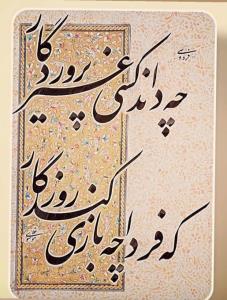 چه داند کسی غیر پروردگار
که فردا چه بازی کند روزگار